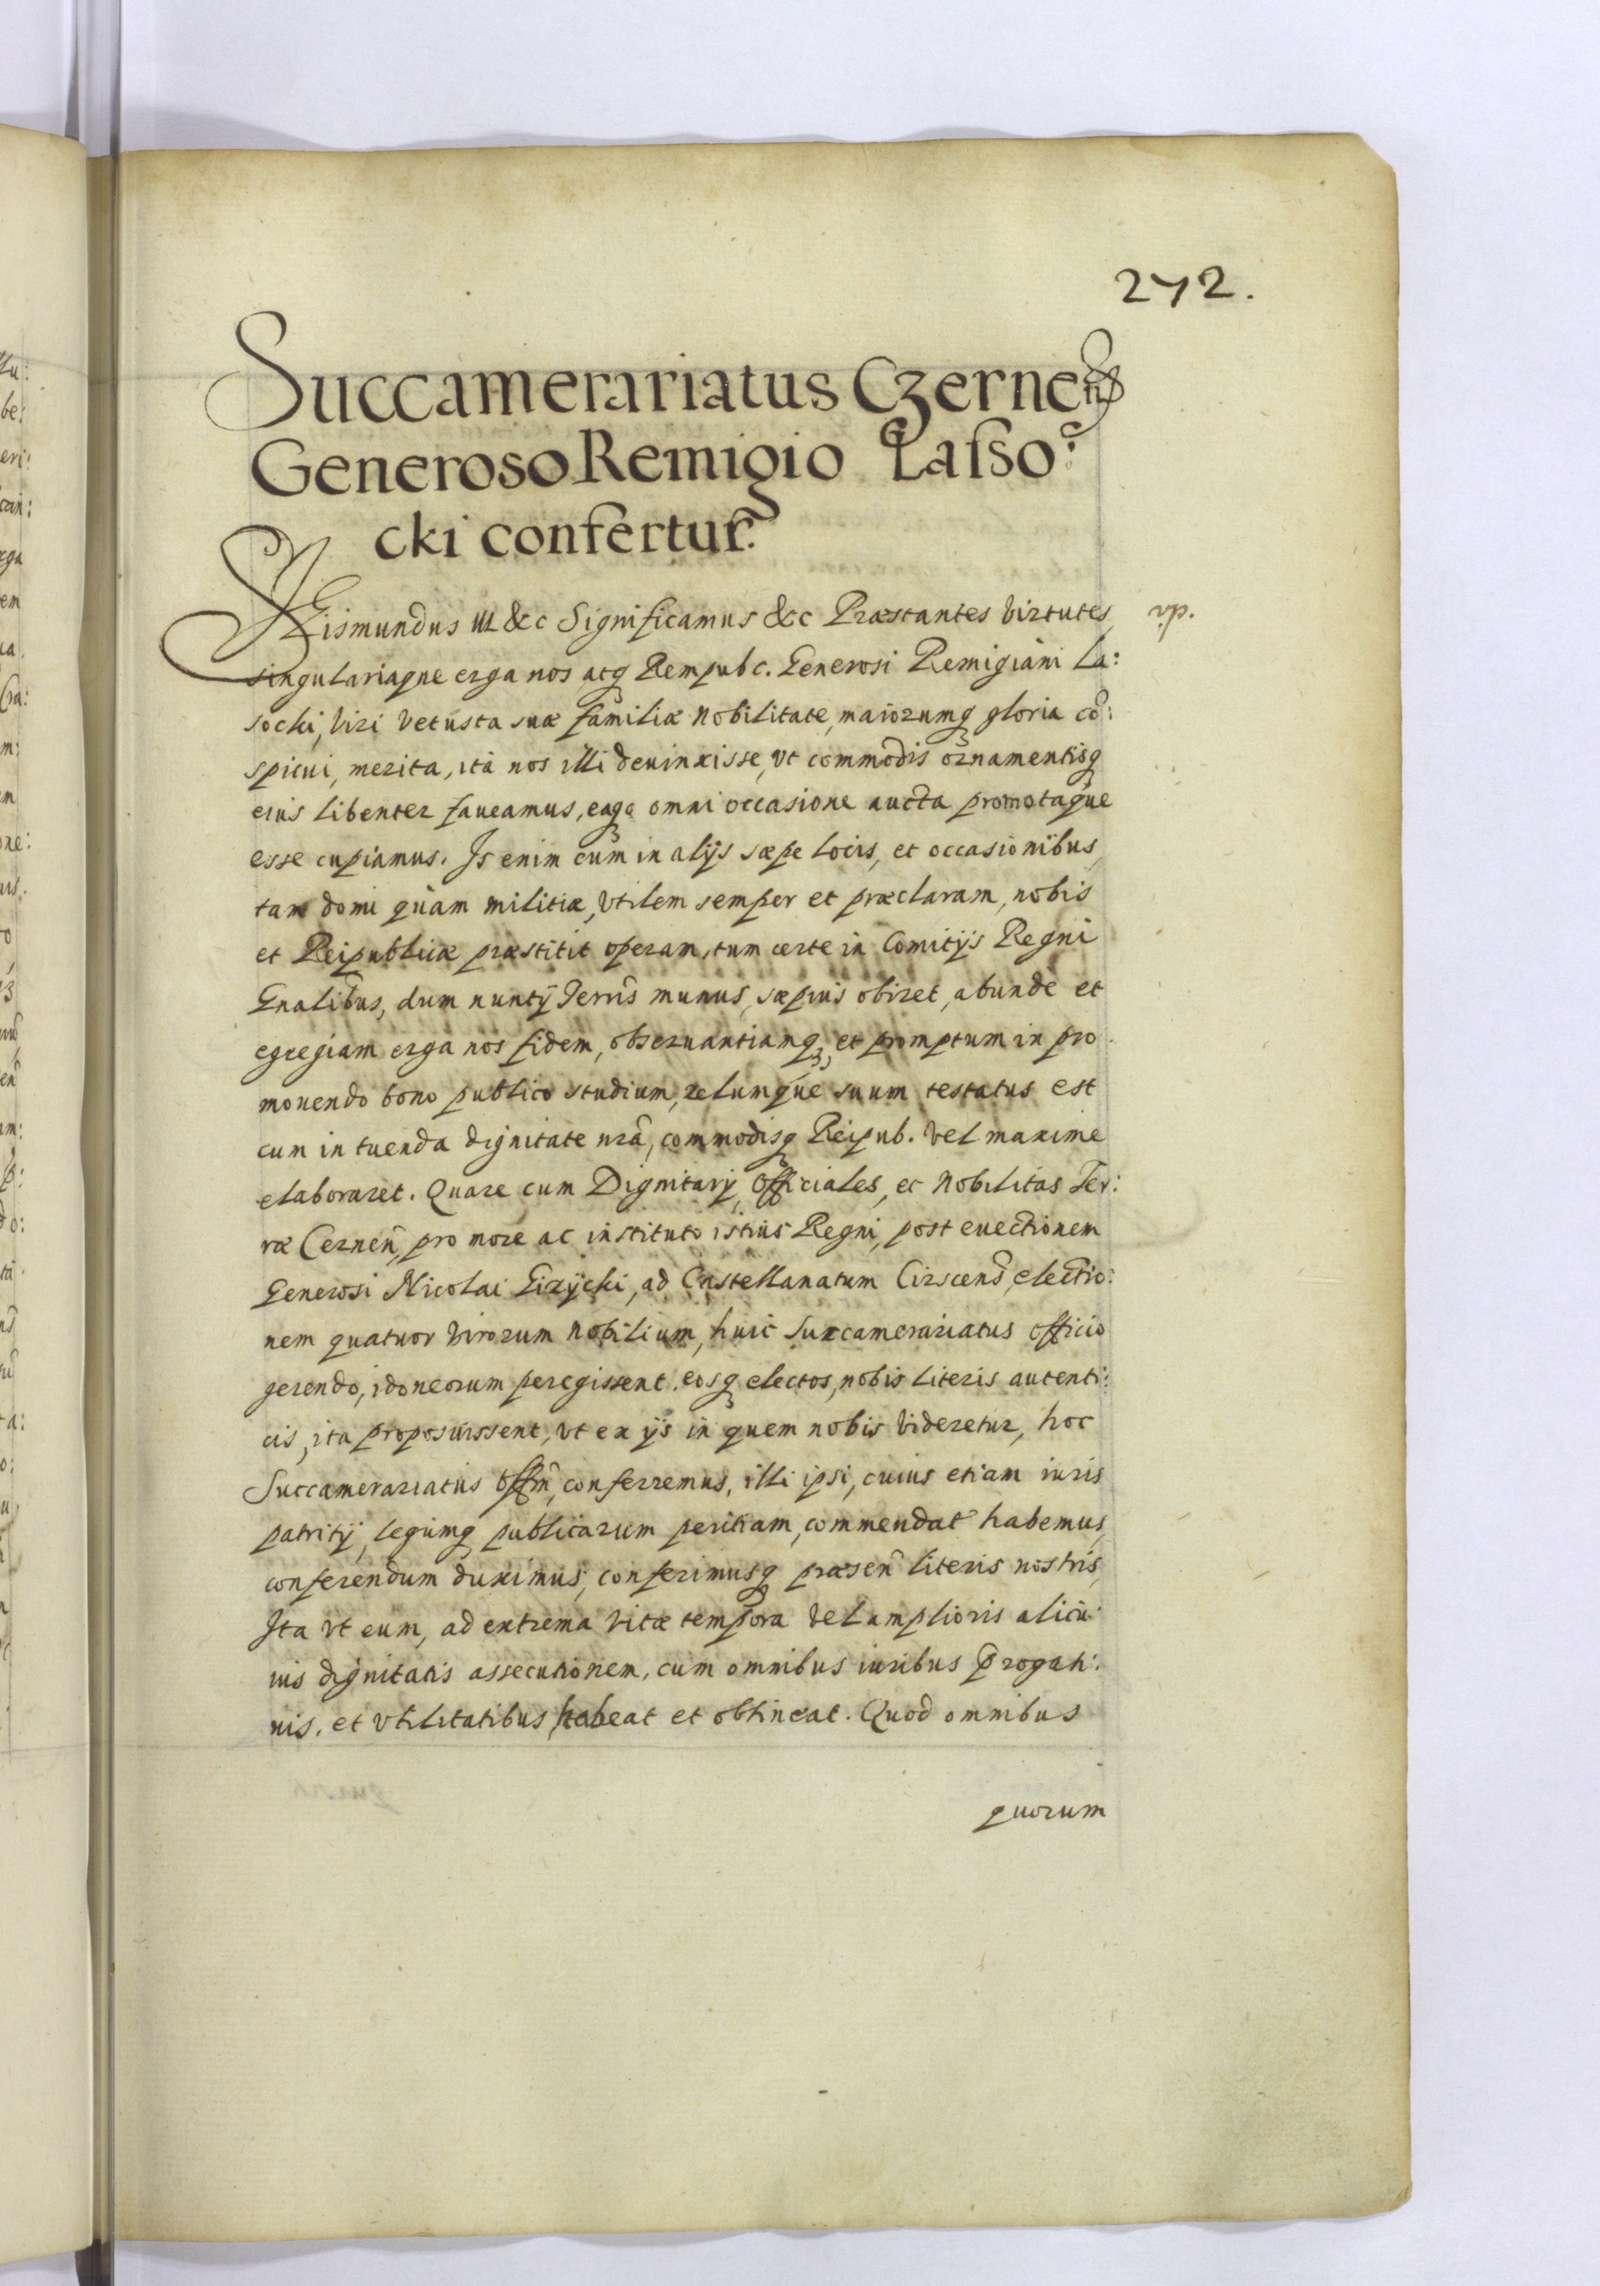 272.
Succamerariatus Czernen̄
Generoso Remigio Lasso:
cki confertur.
Sigismundus III &c Significamus &c Præstantes virtutes, vp.
singulariaqne erga nos atq Rempubc. Generosi Remigiani La:
socki, viri vetusta suæ familiæ nobilitate, maiorumq gloria cō:
spicui, merita, ità nos illi deuinxisse, vt commodis ornamentisq
eius libenter faueamus, eaqꝫ omni occasione aucta promotaque
esse cupiamus. Is enim cum in alijs sæpe locis, et occasionibus,
tam domi quàm militiæ, vtilem semper et præclaram, nobis
et Reipublicæ præstitit operam, tum certe in Comitijs Regni
Gnalibus, dum nuntij Terris munus, sæpius obiret, abunde et
egregiam erga nos fidem, obseruantiamq, et promptum in pro
mouendo bono publico studium, zelumque suum testatus est
cum in tuenda dignitate nrā, commodisq Reipub. vel maxime
elaboraret. Quare cum Dignitarij, Officiales, et Nobilitas Ter:
ræ Cernen̄, pro more ac instituto istius Regni, post euectionem
Generosi Nicolai Gizycki, ad Castellanatum Cirscens̄, electio:
nem quatuor virorum nobilium, huic Succamerariatus officio
gerendo, idoneorum peregissent. eosq electos, nobis literis autenti:
cis, ita proposuissent, vt ex ijs in quem nobis videretur, hoc
Succamerariatus Offm̄, conferremus, illi ipsi, cuius etiam iuris
patritij, legumq publicarum peritiam, commendat habemus,
conferendum duximus, conferimusq præsen̄ literis nostris,
Ita vt eum, ad extrema vitæ tempora vel amplioris alicu:
ius dignitatis assecutionem, cum omnibus iuribus p̄rogati:
uis, et vtilitatibus, habeat et obtineat. Quod omnibus
quorum